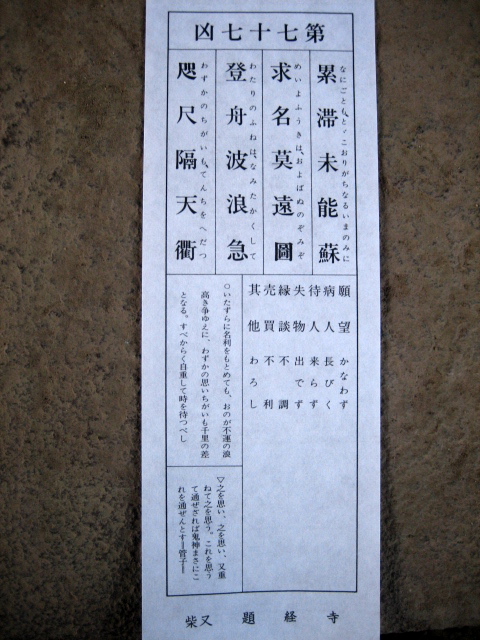 第七十七凶
なにごとも、とゞこおりがちなるいまのみに
累滞未能蘇
めいよふうきは、およばぬのぞみぞ
求名莫遠圖
わたりのふねは、なみたかくして
登舟波浪急
わずかのちがいも、てんちをへだつ
咫尺隔天衢
願望 かなわず
病人 長びく
待人 来らず
失物 出でず
縁談 不調
売買 不利
其他 わろし
○いたずらに名利をもとめても、おのが不運の浪
高き争ゆえに、わずかの思いちがいも千里の差
となる。すべからく自重して時を待つべし
▽之を思い、之を思い、又重
ねて之を思う。これを思う
て通ぜざれば鬼神まさにこ
れを通ぜんとす―管子―
柴又 題経寺